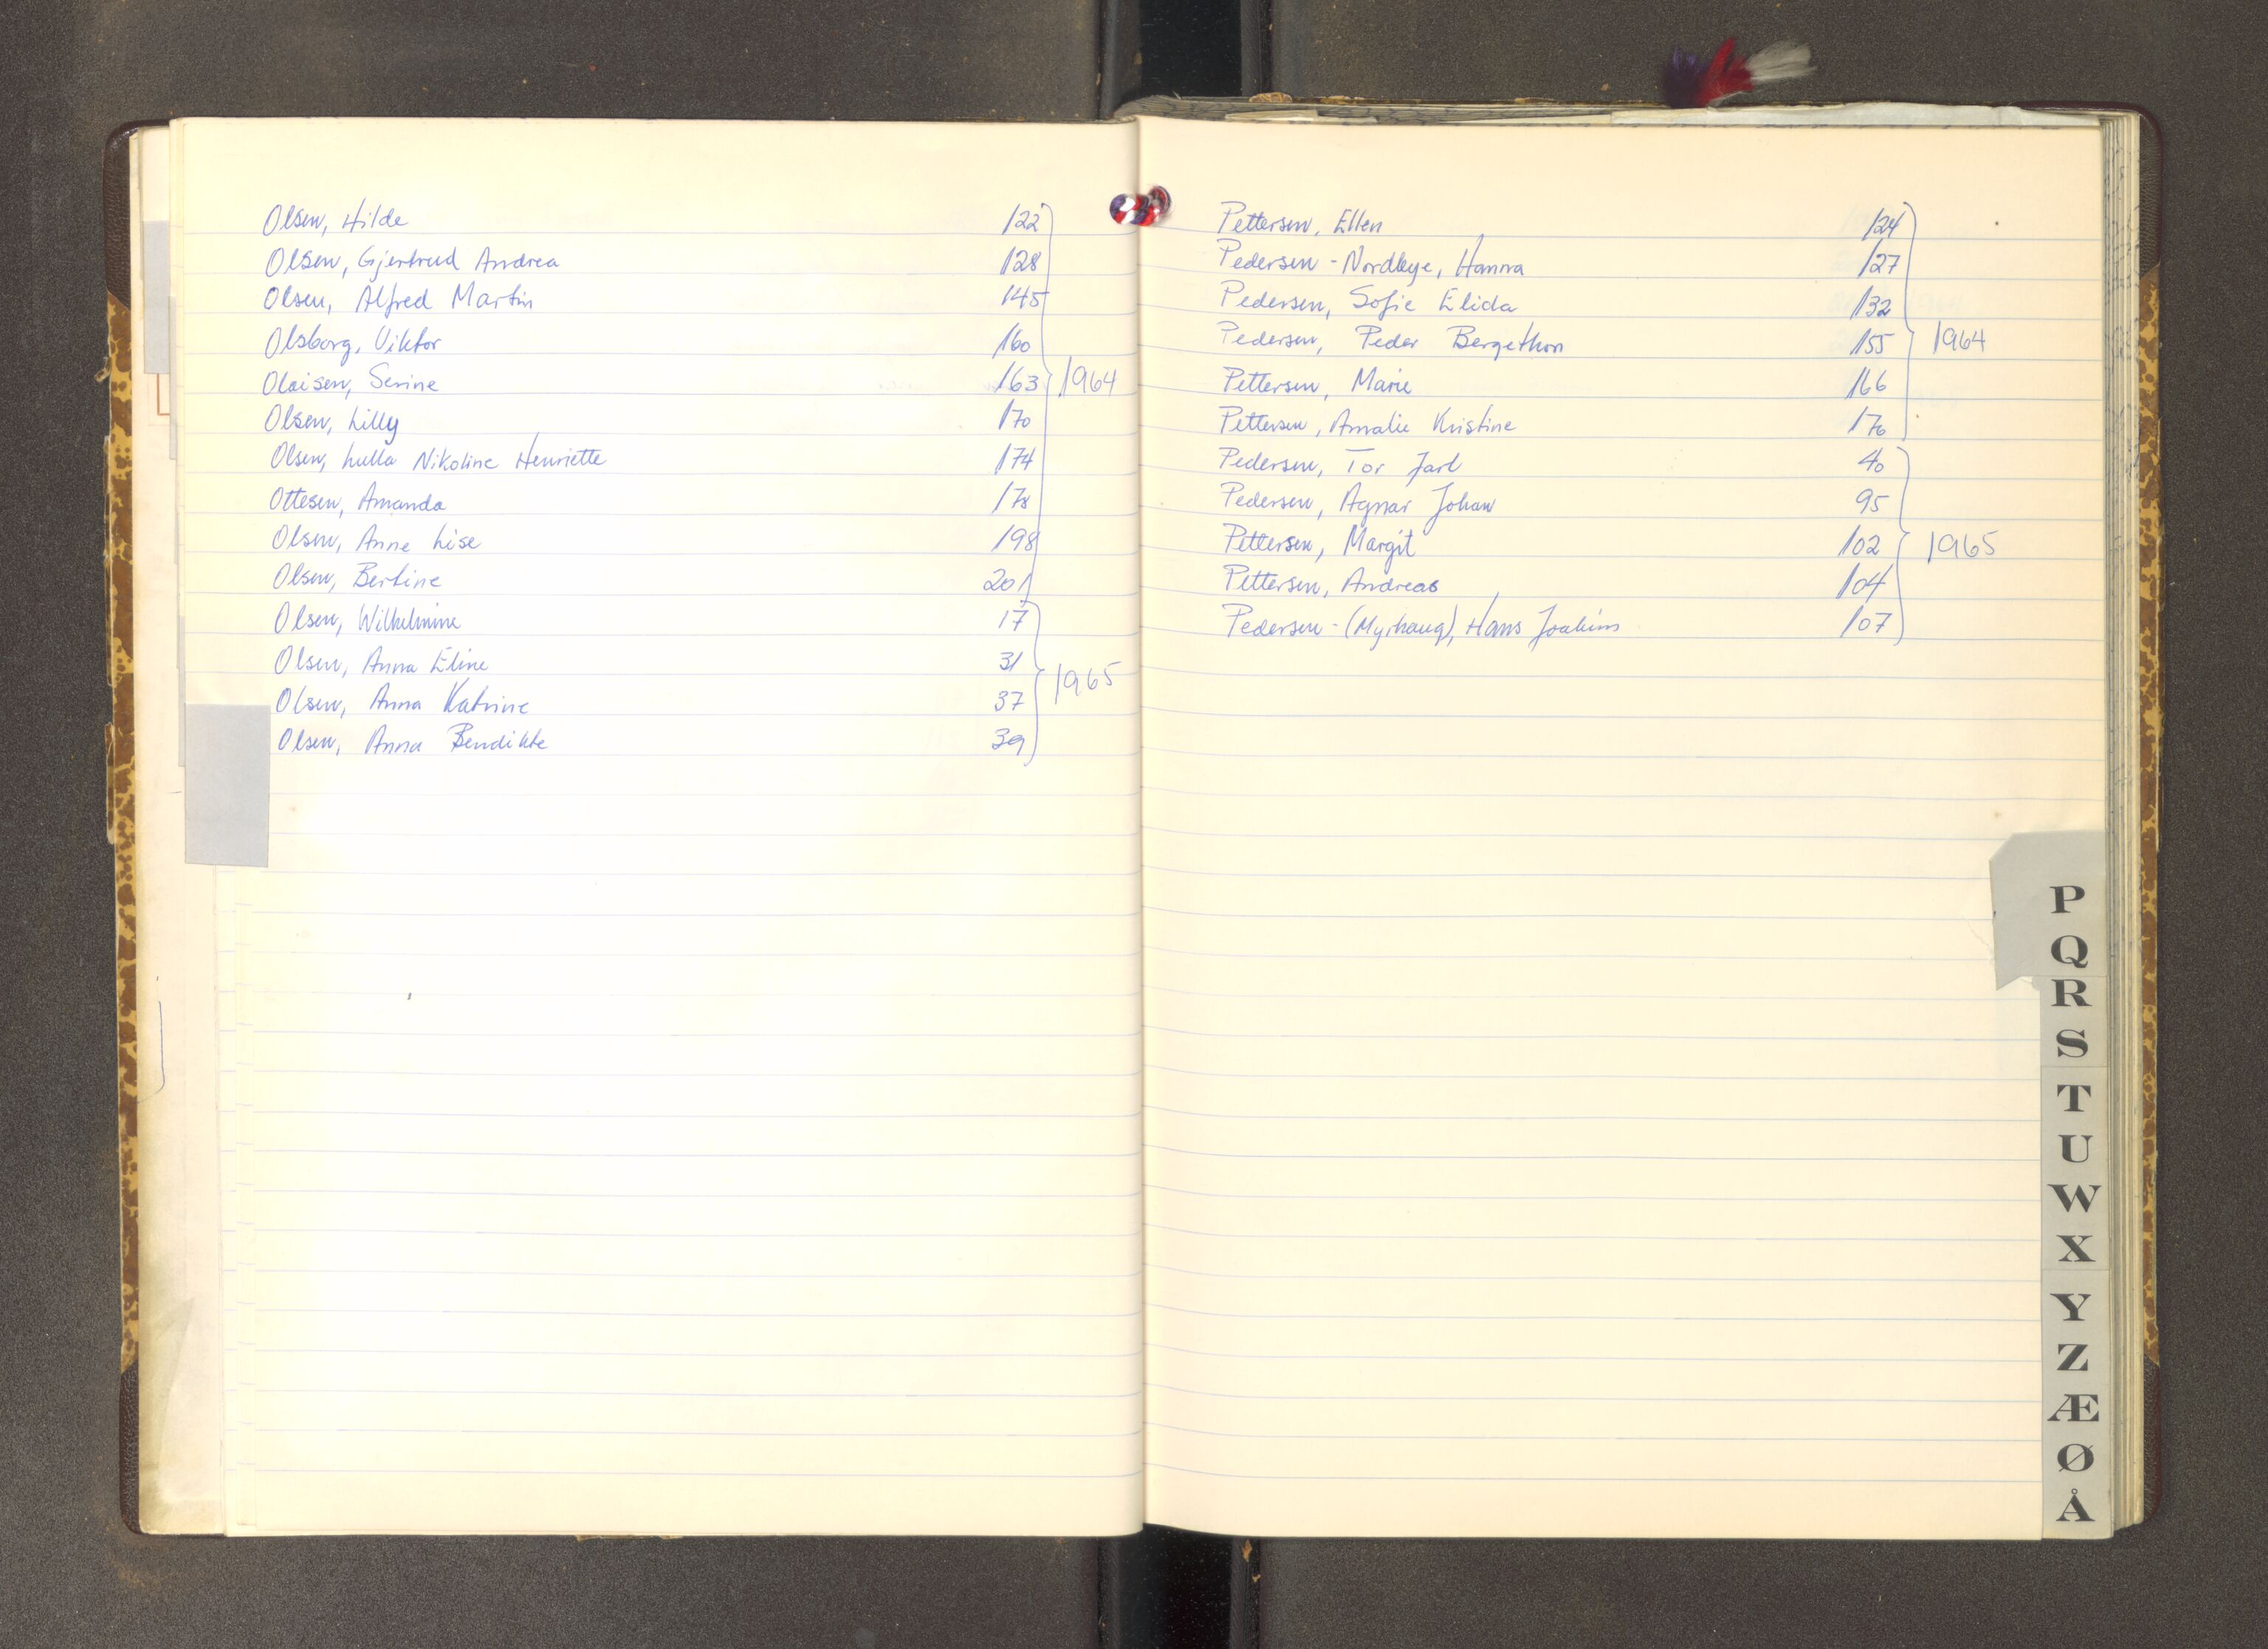 Olsen, Hilde 122
Olsen, Gjertrud Andrea 128
Olsen, Alfred Martin 145
Olsborg, Viktor 160
Olaisen, Serine 163 1964
Olsen, Lilly 170
Olsen, Lulla Nikoline Henriette 174
Ottesen, Amanda 178
Olsen, Anne Lise 198
Olsen, Bertine 201
Olsen, Wilhelmine 17
Olsen, Anna Eline 31
Olsen, Anna Katrine 37 1965
Olsen, Anna Bendikte 39
Pettersen, Ellen 124
Pedersen-Nordbye, Hanna 127
Pedersen, Sofie Elida 132
Pedersen, Peder Bergethon 155 1964
Pettersen, Marie 166
Pettersen, Amalie Kristine 176
Pedersen, Tor Jarl 40
Pedersen, Agnar Johan 95
Pettersen, Margit 102 1965
Pettersen, Andreas 104
Pedersen-(Myrhaug), Hans Joakim 107
P
Q
R
S
T
U
W
X
Y
Z
Æ
Ø
Å